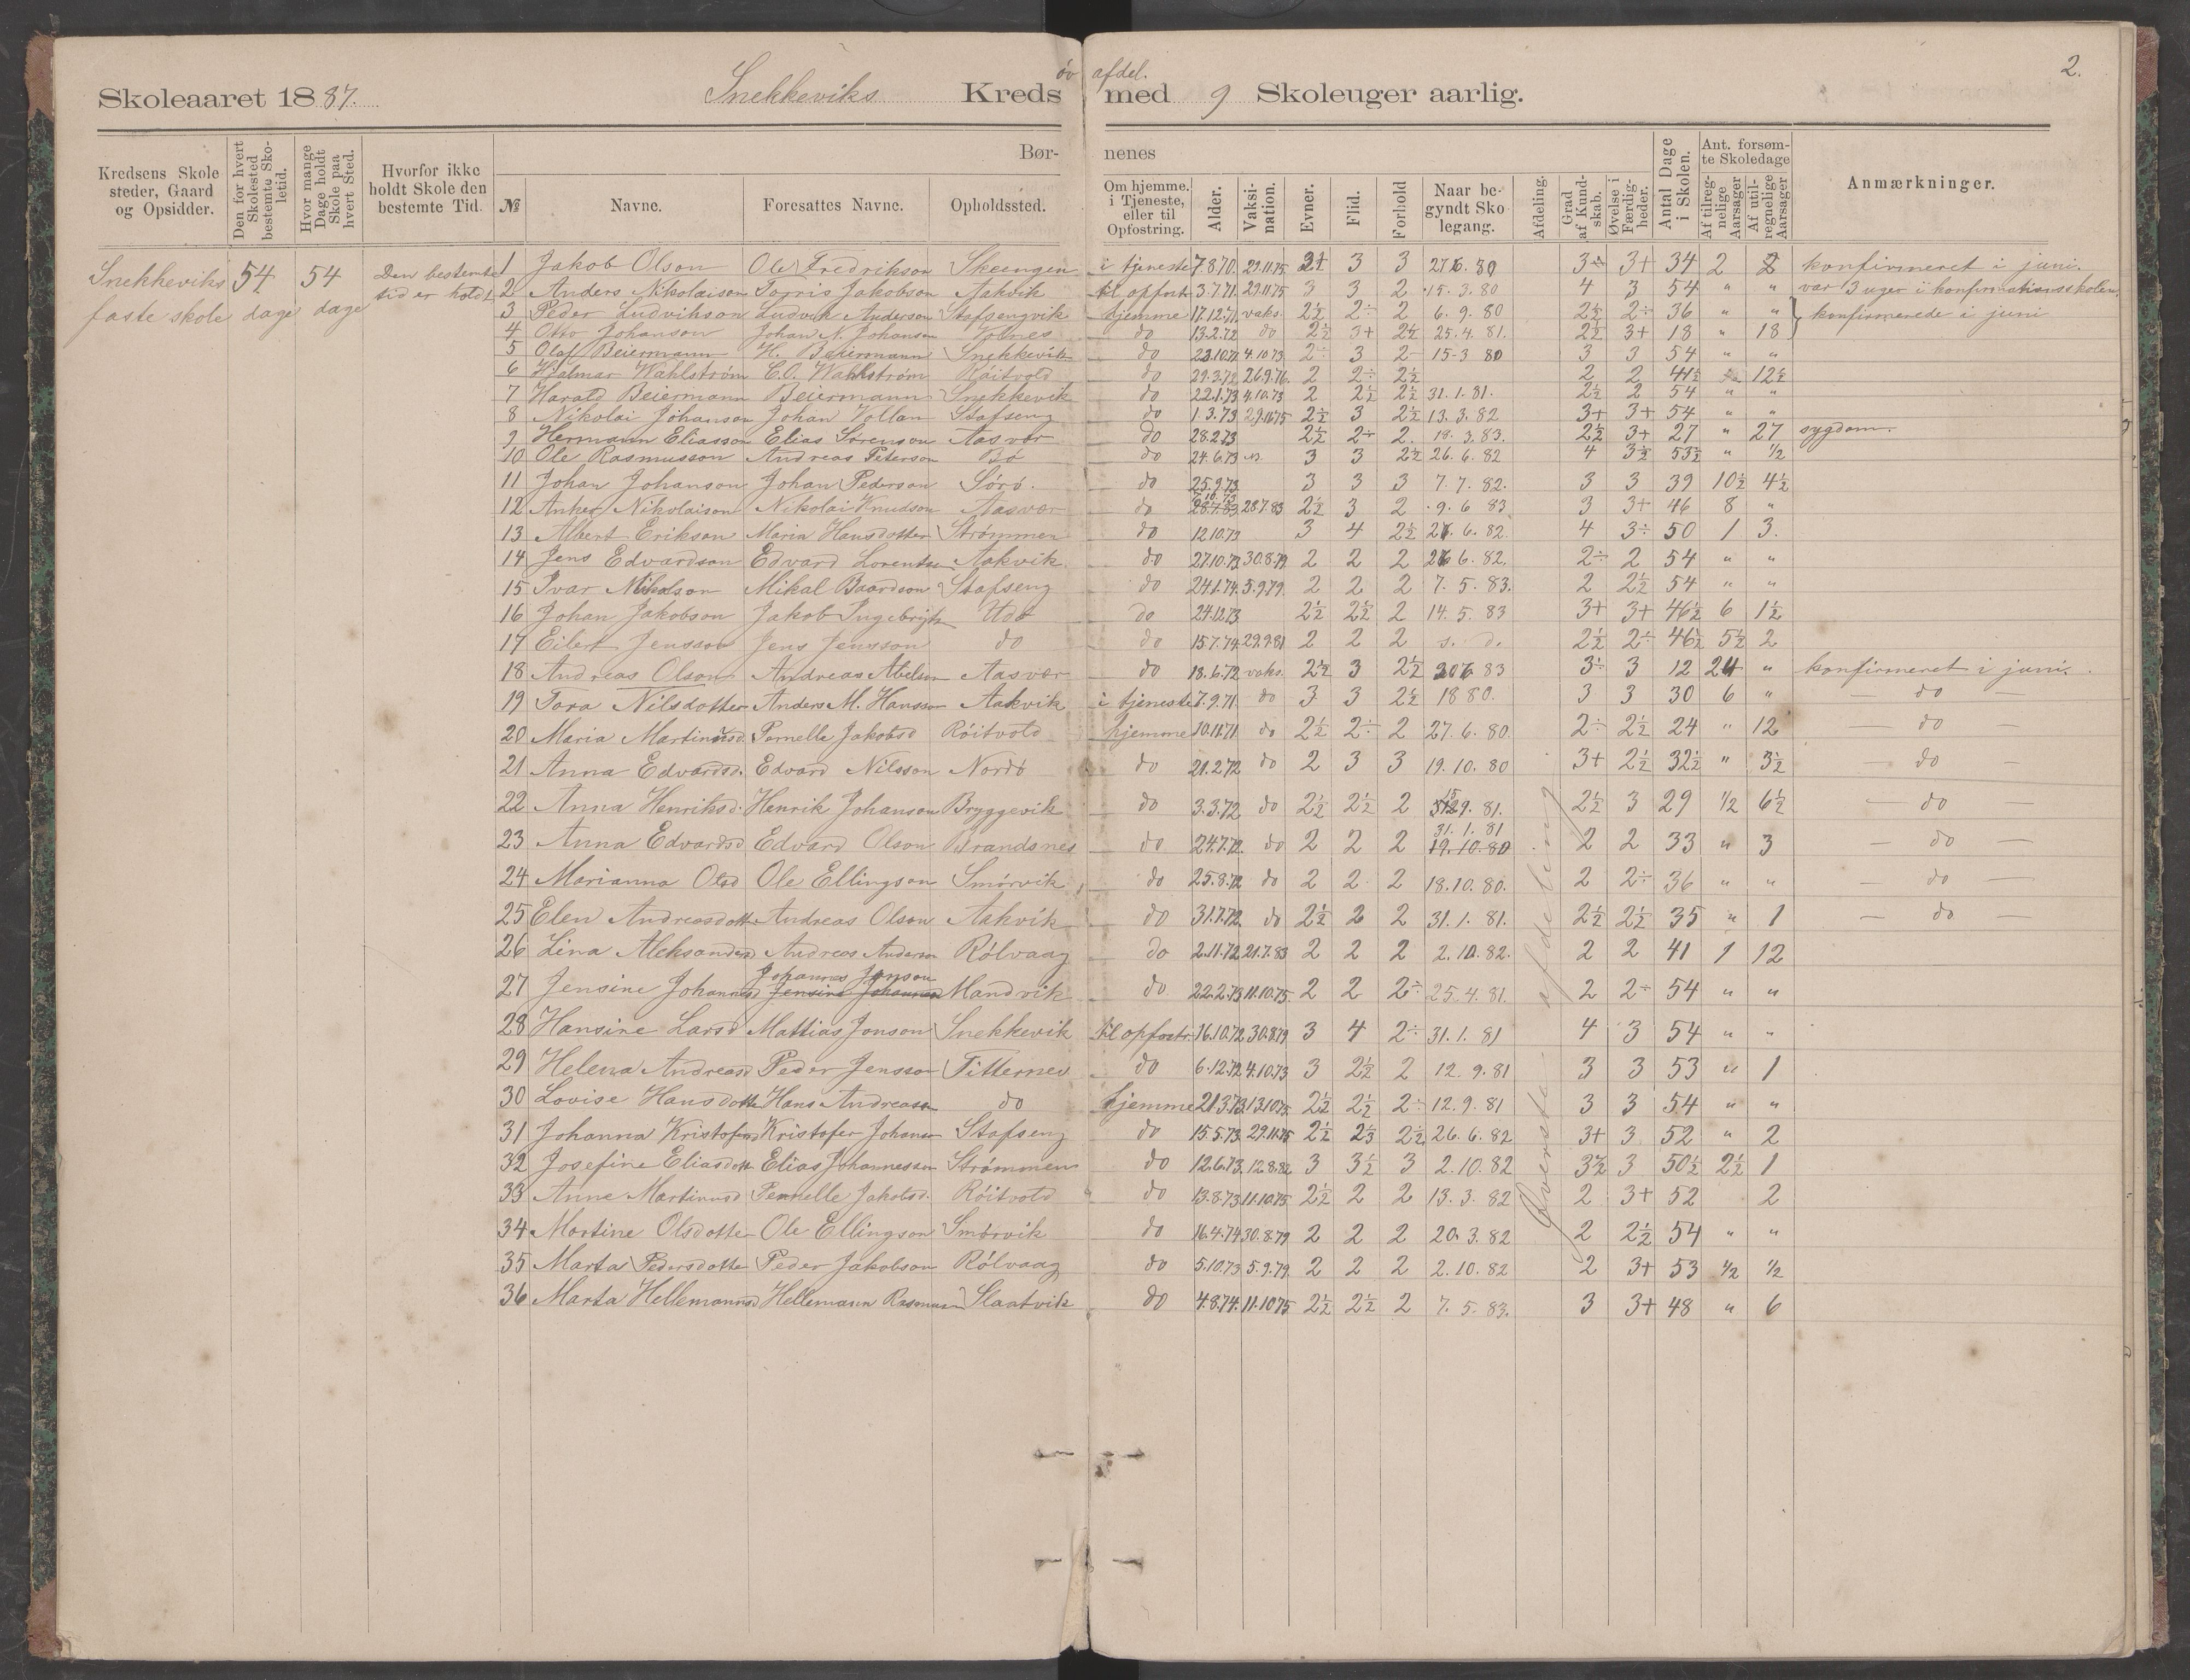 øv. afdel.
2.
Skoleaaret 1887. Snekkeviks Kreds med 9 Skoleuger aarlig.
Kredsens Skolesteder, Gaard og Opsidder. | Den for hvert Skolested bestemte Skoletid. | Hvor mange Dage holdt Skole paa hvert Sted. | Hvorfor ikke holdt Skole den bestemte Tid. | Børnenes
№ | Navne. | Foresattes Navne. | Opholdssted. | Om hjemme, i Tjeneste, eller til Opfostring. | Alder. | Vaksination. | Evner. | Flid. | Forhold | Naar begyndt Skolegang. | Afdeling. | Grad af Kundskab. | Øvelse i Færdigheder. | Antal Dage i Skolen. | Ant. forsømte Skoledage | Af tilregnelige Aarsager | Af utilregnelige Aarsager | Anmærkninger.
Snekkeviks faste skole | 54 dage | 54 dage | Den bestemte tid er holdt
1 Jakob Olson | Ole Fredrikson | Skeengen | i tjeneste | 7.8.70. | 29.11.75 | 3+ | 3 | 3 | 27.6.80 | 3÷ | 3+ | 34 | 2 | 2 | konfirmeret i juni.
2 Anders Nikolaison | Torris Jakobson | Aakvik | til opfost. | 3.7.71. | 29.11.75 | 3 | 3 | 2 | 15.3.80 | 4 | 3 | 54 | " | " | var 3 uger i konfirmationsskolen.
3 Peder Ludvikson | Ludvik Anderson | Stafsengvik | hjemme | 17.12.71 | vaks. | 2½ | 2÷ | 2 | 6.9.80 | 2½ | 2÷ | 36 | " | " | konfirmerede i juni
4 Otto Johanson | Johan N. Johanson | | do | 13.2.72 | do | 2½ | 3+ | 2½ | 25.4.81. | 2½ | 3+ | 18 | " | 18
5 Olaf Beiermann | H. Beiermann | Snekkevik | do | 23.10.71 | 4.10.73 | 2÷ | 3 | 2 | 15-3 80 | 3 | 3 | 54 | " | "
6 Hjalmar Wahlstrøm | C.O. Wahlstrøm | Røitvold | do | 29.3.72 | 26.9.76. | 2 | 2÷ | 2½ | | 2 | 2 | 41½ | | 12½
7 Harald Beiermann | Beiermann | Snekkevik | do | 22.1.73 | 4.10.73 | 2 | 2½ | 2½ | 31.1.81. | 2½ | 2 | 54 | " | "
8 Nikolai Johanson | Johan Vollan | Stafseng | do | 1.3.73 | 29.11.75 | 2½ | 3 | 2½ | 13.3.82 | 3+ | 3+ | 54 | " | "
9 Hermann Eliasson | Elias Sørenson | Aasvær | do | 28.2.73 | | 2½ | 2÷ | 2. | 18.3.83. | 2½ | 3+ | 27 | " | 27 | sygdom.
10 Ole Rasmusson | Andreas Peterson | Bø | do | 24.6.73 | | 3 | 3 | 2½ | 26.6.82 | 4 | 3½ | 53½ | " | ½
11 Johan Johanson | Johan Pederson | Sørø. | do | 25.9.73 | | 3 | 3 | 3 | 7.7.82. | 3 | 3 | 39 | 10½ | 4½
12 Anker Nikolaison | Nikolai Knudson | Aasvær | do | 7.10.73 | 28.7.83 | 2½ | 3 | 2 | 9.6 83 | 3 | 3+ | 46 | 8 | "
13 Albert Erikson | Maria Hansdotter | Strømmen | do | 12.10.73 | | 3 | 4 | 2½ | 26.6.82. | 4 | 3÷ | 50 | 1 | 3.
14 Jens Edvardson | Edvard Lorentsen | Aakvik | do | 27.10.73 | 30.8.79 | 2 | 2 | 2 | 26 6.82. | 2÷ | 2 | 54 | " | "
15 Ivar Mikalson | Mikal Baardson | Stafseng | do | 24.1.74. | 5.9.79. | 2 | 2 | 2 | 7.5.83. | 2 | 2½ | 54 | " | "
16 Johan Jakobson | Jakob Ingebrigts | | do | 24.12.73 | | 2½ | 2½ | 2 | 14.5.83 | 3+ | 3+ | 46½ | 6 | 1½
17 Eilert Jensson | Jens Jensson | do | do | 15.7.74 | 29.9.81 | 2 | 2 | 2 | s. d. | 2½ | 2÷ | 46½ | 5½ | 2
18 Andreas Olson | Andreas Abelson | Aasvær | do | 18.6.72 | vaks. | 2½ | 3 | 2½ | 30 6 83 | 3÷ | 3 | 12 | 24 | " | konfirmeret i juni.
19 Tora Nilsdotter | Anders M. Hanson | Aakvik | i tjeneste | 7.9.71. | do | 3 | 3 | 2½ | 18 80. | 3 | 3 | 30 | 6 | " | — do —
20 Maria Martinusd. | Pernelle Jakobsd | Røitvold | hjemme | 10.11.71 | do | 2½ | 2÷ | 2 | 27.6.80. | 2÷ | 2½ | 24 | " | 12 | — do —
21 Anna Edvardsd. | Edvard Nilsson | Nordø | do | 21.2.72 | do | 2 | 3 | 3 | 19.10.80 | 3+ | 2½ | 32½ | " | 3½ | — do —
22 Anna Henriksd. | Henrik Johanson | Bryggevik | do | 3.3.72 | do | 2½ | 2½ | 2 | 15 9.81. | 2½ | 3 | 29 | ½ | 6½ | — do —
23 Anna Edvardsd | Edvard Olson | Brandsnes | do | 24.7.72. | do | 2 | 2 | 2 | 31.1.81 19.10.80 | 2 | 2 | 33 | " | 3 | — do —
24 Marianna Olsd | Ole Ellingson | Smørvik | do | 25.8.72 | do | 2 | 2 | 2 | 18.10.80. | 2 | 2÷ | 36 | " | " | — do —
25 Elen Andreasdott | Andreas Olson | Aakvik | do | 31.7.72. | do | 2½ | 2 | 2 | 31.1.81. | 2½ | 2½ | 35 | " | 1 | — do —
26 Lina Aleksandersd | Andreas Anderson | Rølvaag | do | 2.11.72 | 21.7.83 | 2 | 2 | 2 | 2.10.82. | 2 | 2 | 41 | 1 | 12
27 Jensine Johannesd | Johannes Jonson Jensine Johannesd | Mandvik | do | 22.2.73 | 11.10.75. | 2 | 2 | 2÷ | 25.4.81. | 2 | 2÷ | 54 | " | "
28 Hansine Larsd | Mattias Jonson | Snekkevik | til opfostr. | 16.10.72 | 30.8.79 | 3 | 4 | 2÷ | 31.1.81 | 4 | 3 | 54 | " | "
29 Helena Andreasd | Peder Jensson | Titternes | do | 6.12.72 | 4.10.73 | 3 | 2½ | 2 | 12.9.81 | 3 | 3 | 53 | " | 1
30 Lovise Hansdotte | Hans Andreason | do | hjemme | 21.3.73. | 13.10.75. | 2½ | 2½ | 2÷ | 12.9.81 | 3 | 3 | 54 | " | "
31 Johanna Kristofersd | Kristofer Johanson | Stafseng | do | 15.5.73. | 29.11.75 | 2½ | 2½ | 2½ | 26.6.82 | 3+ | 3 | 52 | " | 2
32 Josefine Eliasdott | Elias Johannesson | Strømmen | do | 12.6.73. | 12.8.82 | 3 | 3½ | 3 | 2.10.82 | 3½ | 3 | 50½ | 2½ | 1
33 Anne Martinusd | Pernelle Jakobsd. | Røitvold | do | 13.8.73 | 11.10.75 | 2½ | 2 | 2 | 13.3.82 | 2 | 3+ | 52 | | 2
34 Martine Olsdotte | Ole Ellingson | Smørvik | do | 16.4.74 | 30.8.79 | 2 | 2 | 2 | 20.3.82 | 2 | 2½ | 54 | " | "
35 Marta Pedersdotte | Peder Jakobson | Rølvaag | do | 5.10.73 | 5.9.79. | 2 | 2 | 2 | 2.10.82 | 2 | 3+ | 53 | ½ | ½
36 Marta Hellemannsd | Hellemann Rasmusson | Slaatvik | do | 4.8.74. | 11.10 75 | 2½ | 2½ | 2 | 7.5.83. | 3 | 3+ | 48 | " | 6
Øverste afdeling